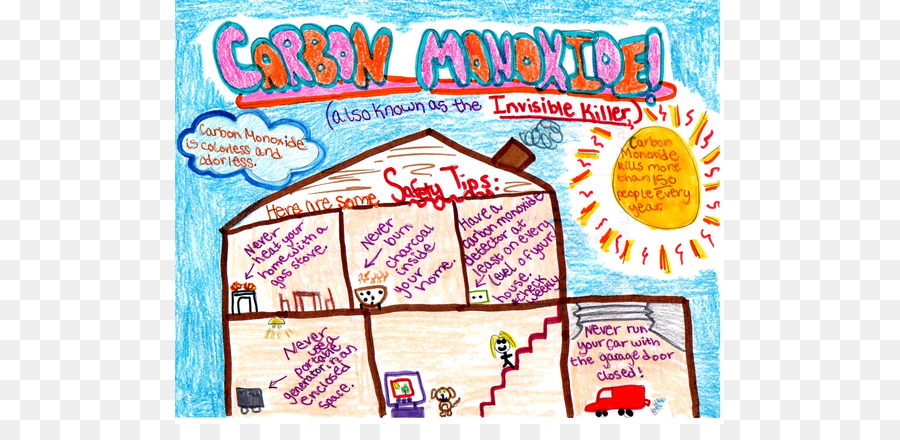 CARBON MONOXIDE!
(also known as the Invisible Killer,)
Carbon Monoxide
is colorless and
odorless.
Carbon
Monoxide
kills more
than 150
people every
year.
Here are some Safety Tips:
Never
heat your
home with a
gas stove.
Never
burn
charcoal
inside
your
home.
Have a
carbon monoxide
detector at
least on every
level of your
house.
check
weekly
Never
use a
portable
generator in an
enclosed
space.
Never run
your car with
the garage door
closed!